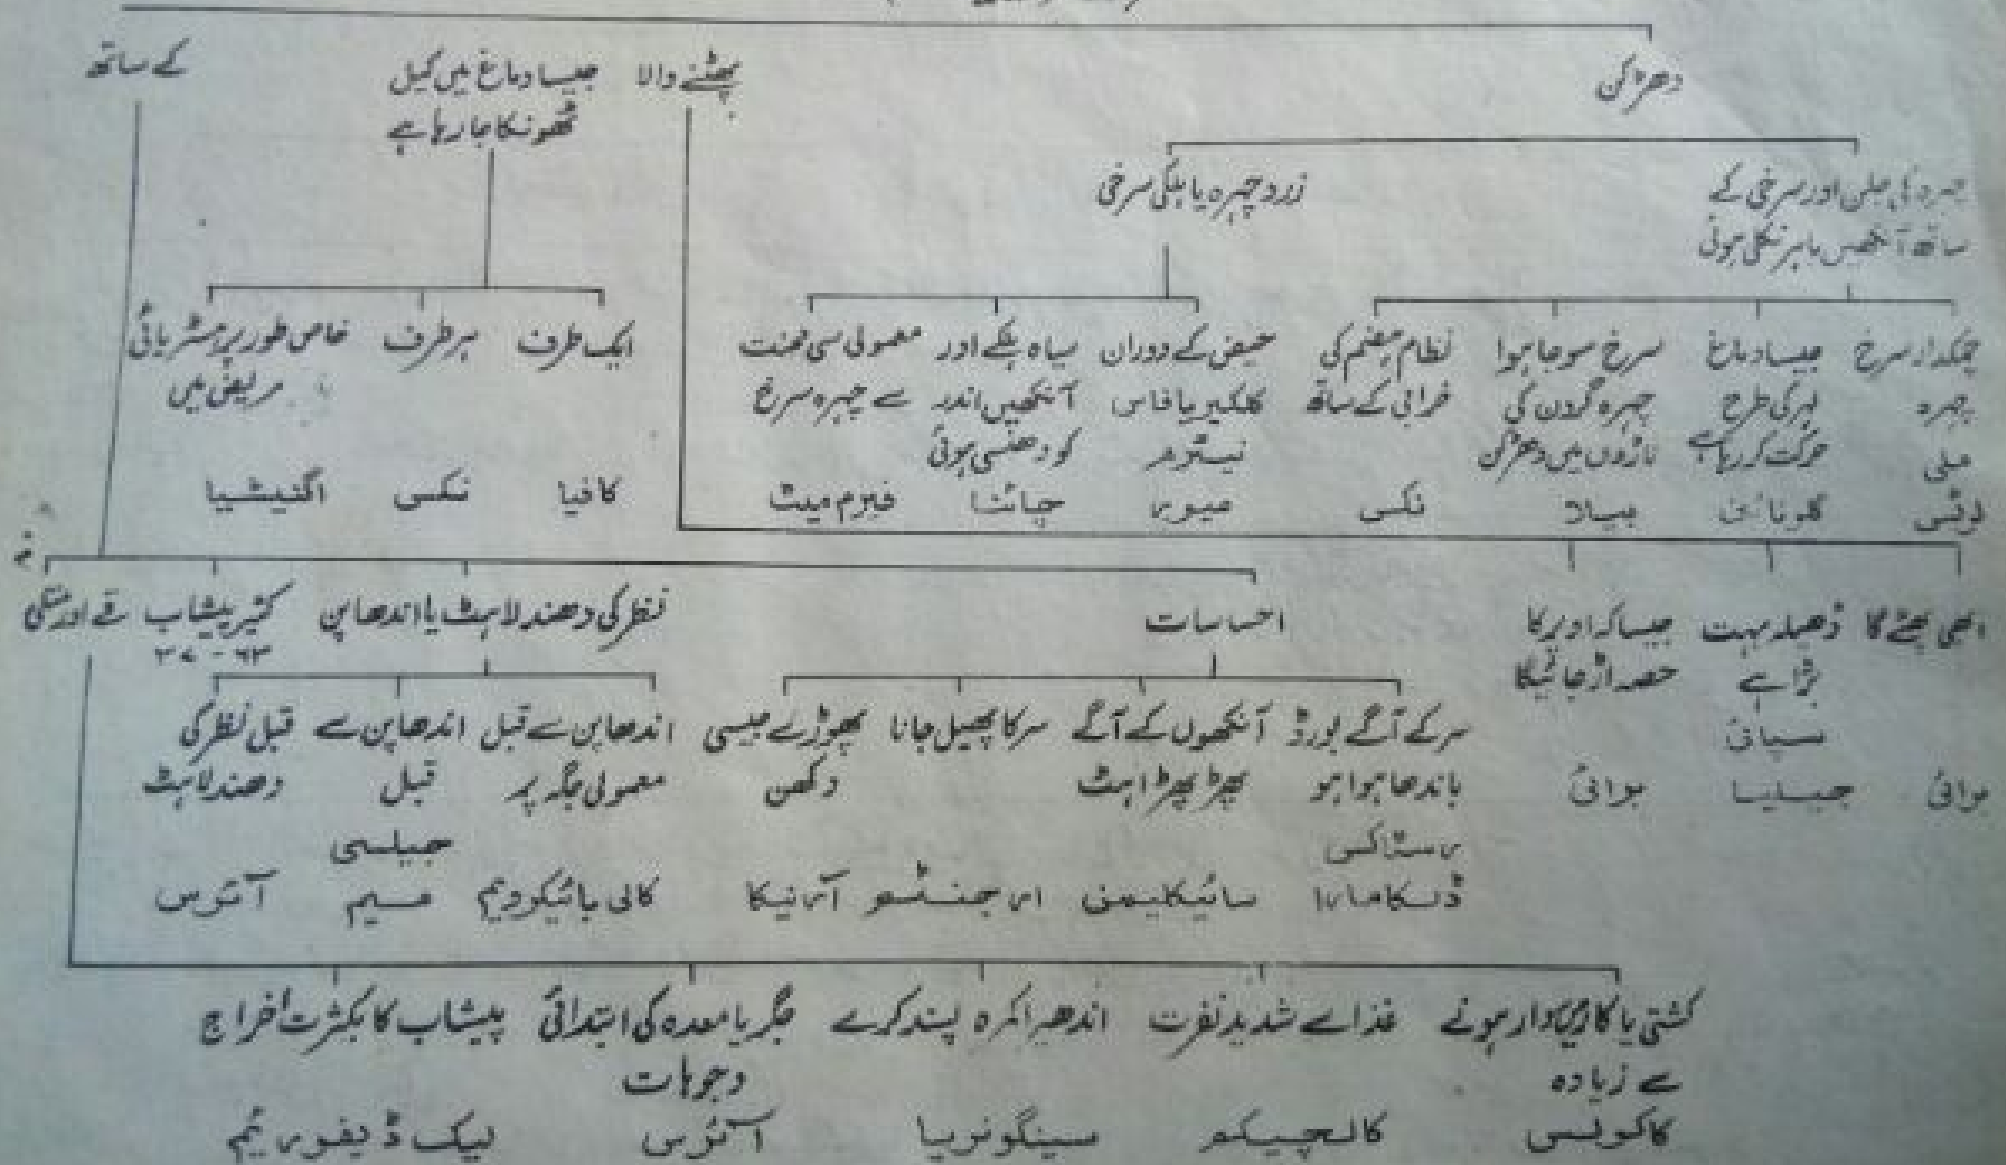 دھڑکن
پھٹنے والا
جیسا دماغ میں کیل
ٹھونکا جا رہا ہے
کے ساتھ
چہرہ کا جلن اور سرخی کے
ساتھ آنکھیں باہر نکلی ہوئی
زرد چہرہ یا ہلکی سرخی
چمکدار سرخ
چہرہ
ملی
لوٹس
جیسا دماغ
لہر کی طرح
حرکت کر رہا ہے
گلونائن
سرخ سوجا ہوا
چہرہ گردن کی
ناڑوں میں دھڑکن
بیلا
نظام ہضم کی
خرابی کے ساتھ
نکس
حیض کے دوران
کلکیریا فاس
نیٹرم
میور
سیاہ ہلکے اور
آنکھیں اندر
کو دھنسی ہوئی
چائنا
معمولی سی محنت
سے چہرہ سرخ
فیرم میٹ
ایک طرف
کافیا
ہر طرف
نکس
خاص طور پر ہسٹریائی
مریض میں
اگنیشیا
ابھی پھٹے گا
برائی
ڈھیلہ بہت
بڑا ہے
سپائی
جیلیا
جیسا کہ اوپر کا
حصہ اڑ جائیگا
برائی
احساسات
نظر کی دھندلاہٹ یا اندھا پن
کثیر پیشاب
قے اور متلی
سر کے آگے بورڈ
باندھا ہوا ہو
رسٹاکس
ڈلکامارا
آنکھوں کے آگے
پھڑپھڑاہٹ
سائیکلیمن
سر کا پھیل جانا
ارجنٹم
پھوڑے جیسی
دکھن
آرنیکا
اندھا پن سے قبل
معمولی جگہ پر
کالی بائیکرویم
اندھا پن سے
قبل
جیلسی
میم
قبل نظر کی
دھندلاہٹ
آئرس
کشتی یا گاڑی سوار ہونے
سے زیادہ
کاکولس
غذا سے شدید نفرت
کالچیکم
اندھیرا کمرہ پسند کرے
سینگونریا
جگر یا معدہ کی ابتدائی
وجوہات
آئرس
پیشاب کا بکثرت اخراج
لیک ڈیفلوریٹم